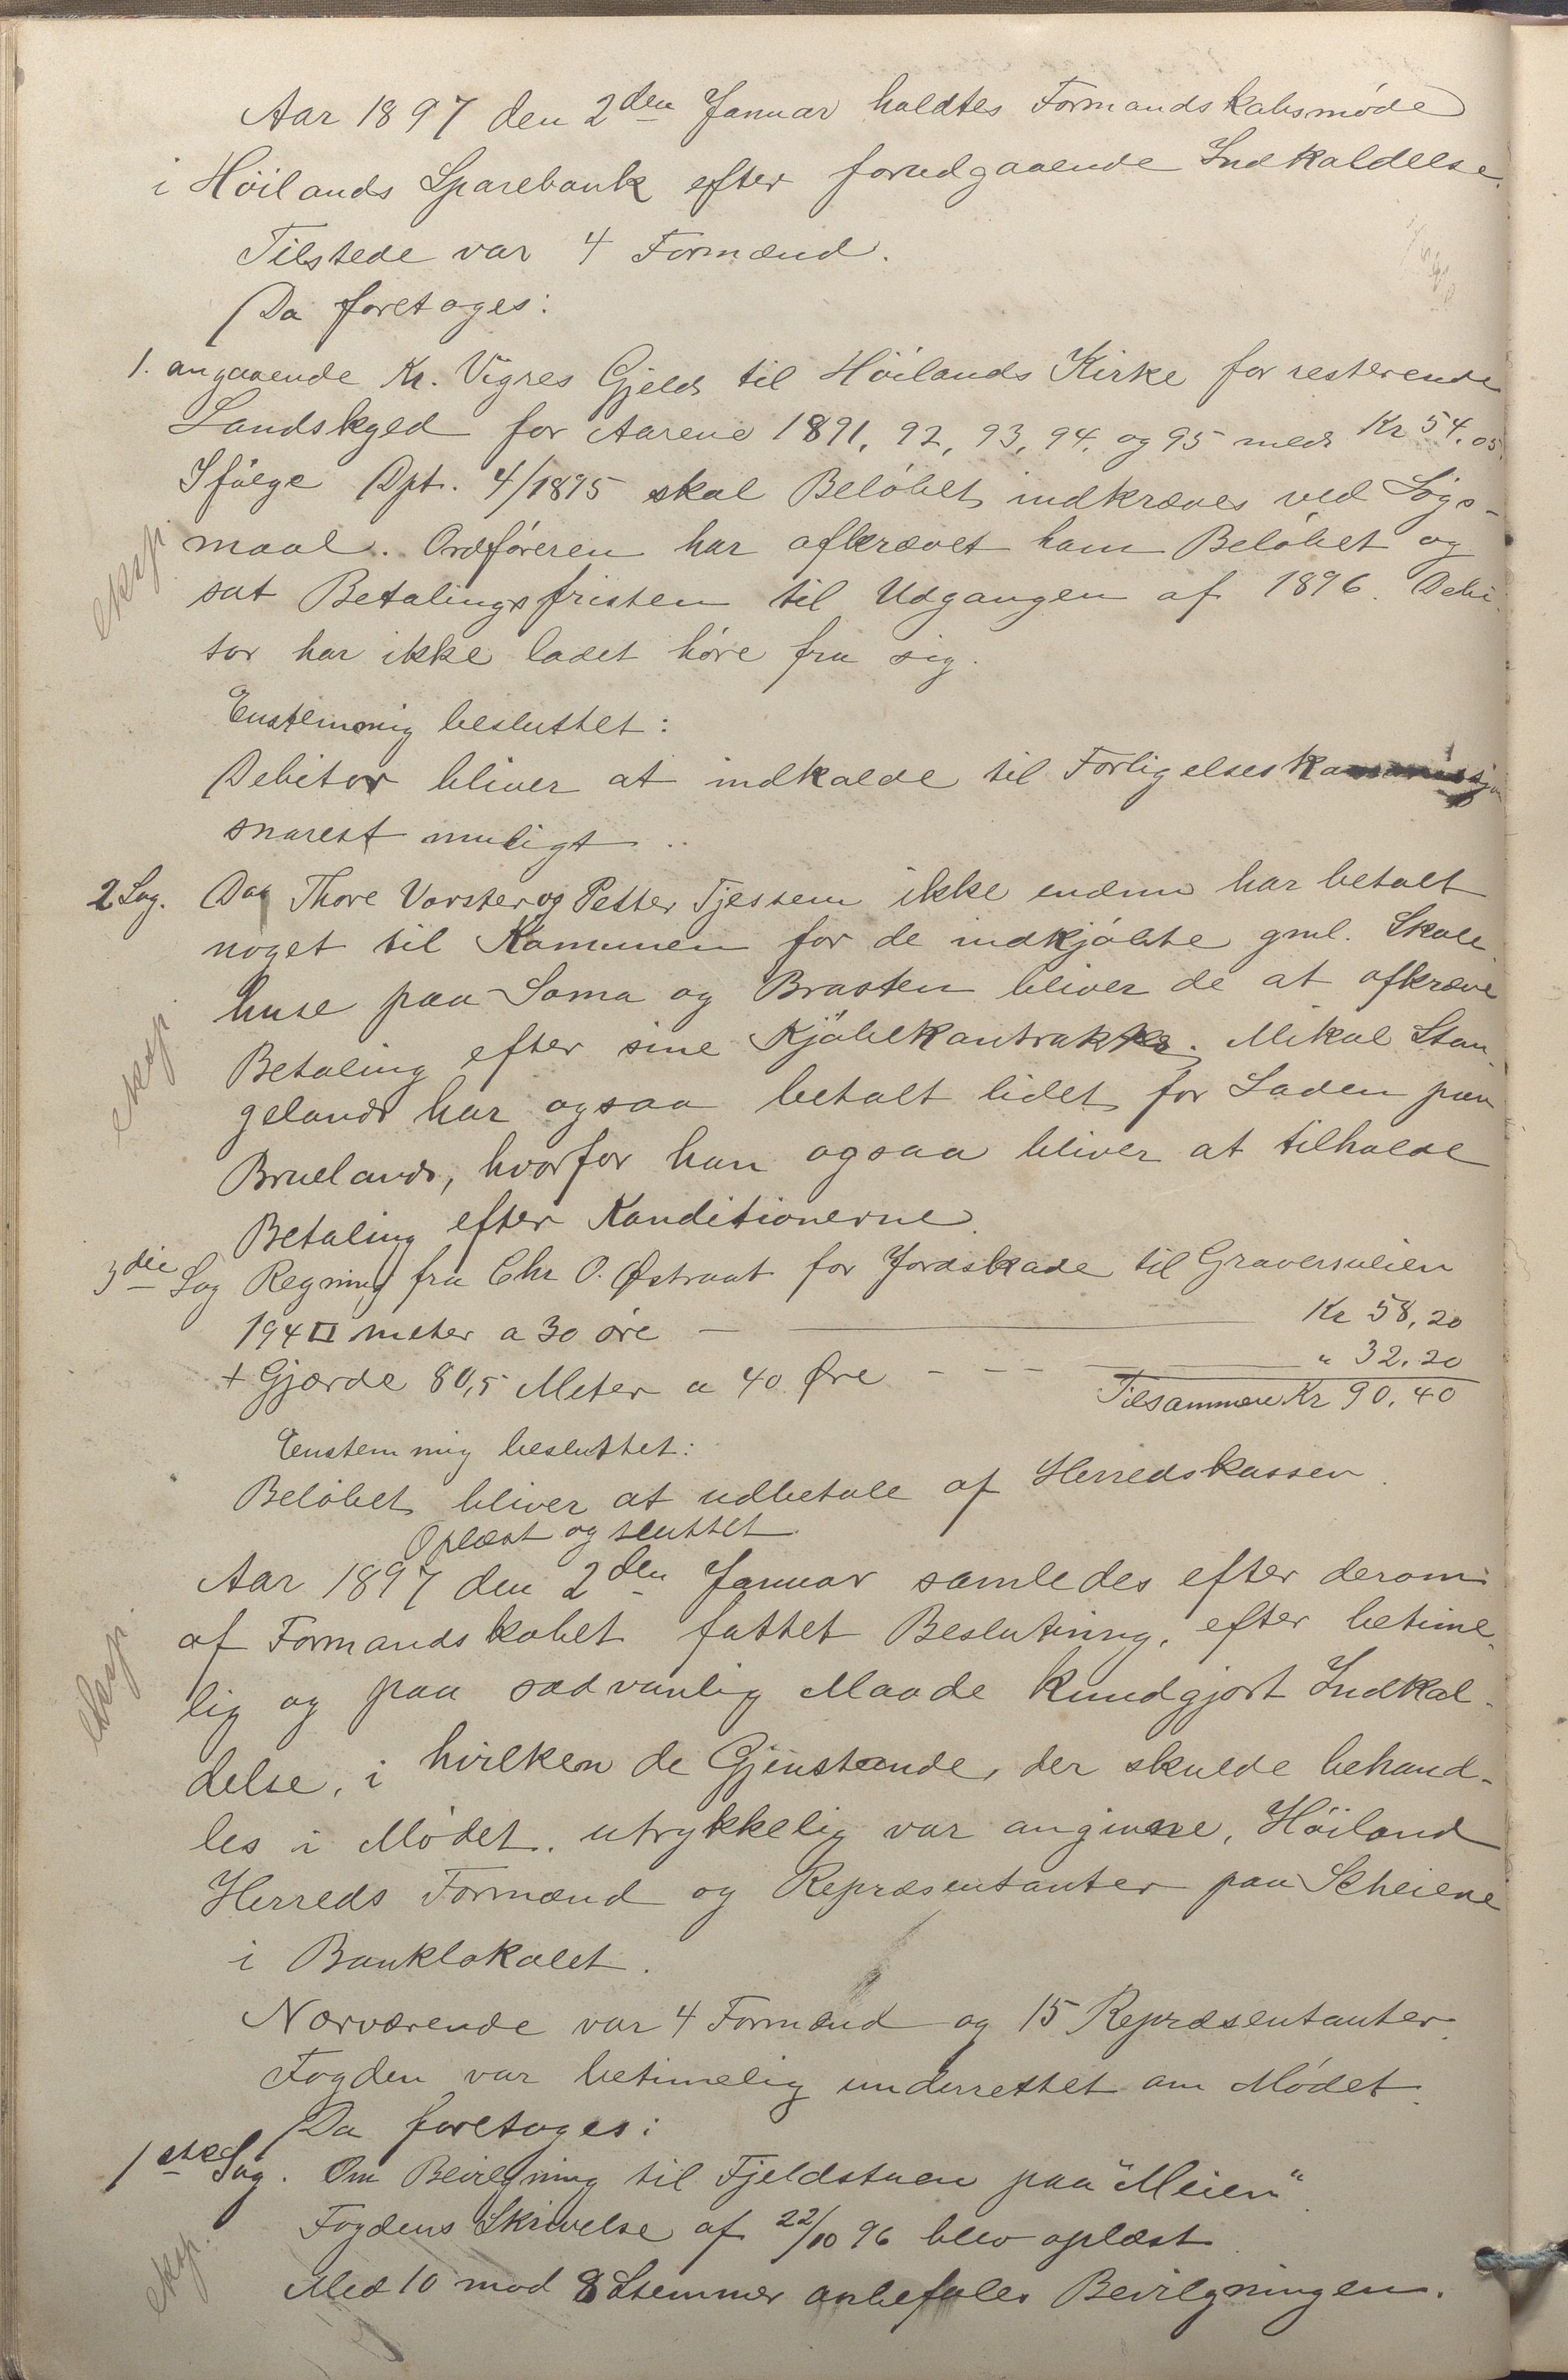 Aar 1897 den 2den Januar holdtes Formandskabsmøde
i Höilands Sparebank efter forudgaaende Indkaldelse.
Tilstede var 4 Formænd.
Da foretoges:
1. angaaende Kr. Vigres Gjeld til Höilands Kirke for resterende
Landskyld for Aarene 1891, 92, 93, 94, og 95 med Kr 54,05.
Ifölge Dpt. 4/1895 skal Belöbet indkræves ved Søgs-
eksp.
maal. Ordföreren har afkrævet ham Belöbet og
sat Betalingsfristen til Udgangen af 1896. Debi-
tor har ikke ladet höre fra sig.
Enstemmig besluttet:
Debitor bliver at indkalde til Forligelseskommissjon
snarest muligt.
2 Sag. Da Thore Vorster og Petter Tjessem ikke endnu har betalt
noget til Kommunen for de indkjöbte gml. Skole-
huse paa Soma og Brasten bliver de at afkræve
eksp.
Betaling efter sine Kjöbekontrakter. Mikal Stan-
geland har ogsaa betalt lidet for Laden paa
Brueland, hvorfor han ogsaa bliver at tilholde
Betaling efter Konditionerne.
3die Sag Regning fra Chr O. Østraat for Jordskade til Graverveien
194 □ meter a 30 öre — Kr 58,20
+ Gjærde 80,5 Meter a 40 Øre - - - " 32,20
Tilsammen Kr 90,40
Enstemmig besluttet:
Belöbet bliver at udbetale af Herredskassen.
Oplæst og sluttet
Aar 1897 den 2den Januar samledes efter derom
af Formandskabet fattet Beslutning, efter betime-
eksp.
lig og paa sædvanlig Maade kundgjort Indkal-
delse, i hvilken de Gjenstande, der skulde behand-
les i Mödet, utrykkelig var angivne, Höiland
Herreds Formænd og Repræsentanter paa Scheiene
i Banklokalet.
Nærværende var 4 Formænd og 15 Repræsentanter.
Fogden var betimelig underrettet om Mödet.
Da foretoges:
1ste Sag. Om Bevilgning til Fjeldstuen paa "Meien".
Fogdens Skrivelse af 22/10 96 blev oplæst
eksp.
Med 10 mod 8 Stemmer anbefales Bevilgningen.